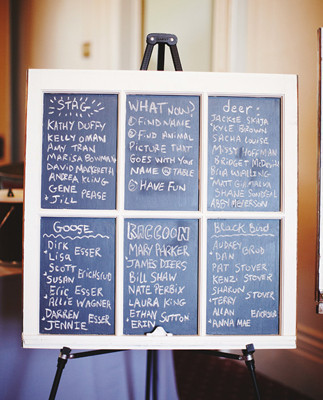 STAG
KATHY DUFFY
KELLY OMAN
AMY TRAN
MARISA BOWMAN
DAVID MARKERTH
ANDREA KLING
GENE PEASE
JILL
WHAT NOW?
① FIND NAME
② FIND ANIMAL
PICTURE THAT
GOES WITH YOUR
NAME @ TABLE
③ HAVE FUN
deer
JACKIE
KYLE BROWN
SACHA LOUISE
MISSY HOFFMAN
BRIDGET
WALLING
MATT
SHANE
ABBY MEYERSON
GOOSE
DIRK ESSER
LISA
SCOTT ERICHSRUD
SUSAN
ERIC ESSER
ALLIE WAGNER
DARREN ESSER
JENNIE
RACCOON
MARY PARKER
JAMES DIERS
BILL SHAW
NATE PERBIX
LAURA KING
ETHAN SUTTON
ERIN
Black bird
AUDREY BRUD
DAN
PAT STOVER
KENZI STOVER
SHARON STOVER
TERRY
ALLAN ERICHSRUD
ANNA MAE